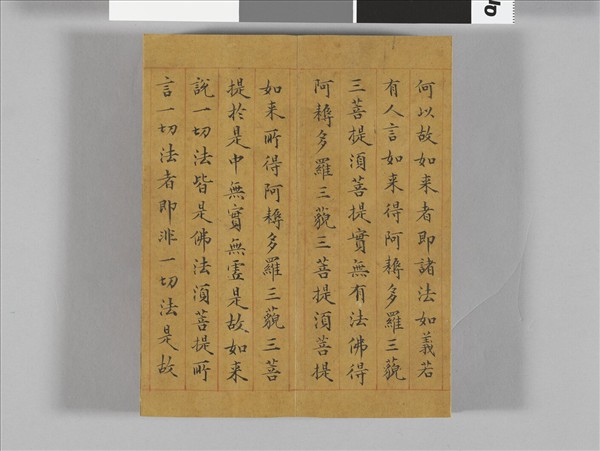 何以故如来者即諸法如義若
有人言如来得阿耨多羅三藐
三菩提湏菩提實無有法佛得
阿耨多羅三藐三菩提湏菩提
如来所得阿耨多羅三藐三菩
提於是中無實無虛是故如来
說一切法皆是佛法湏菩提所
言一切法者即非一切法是故